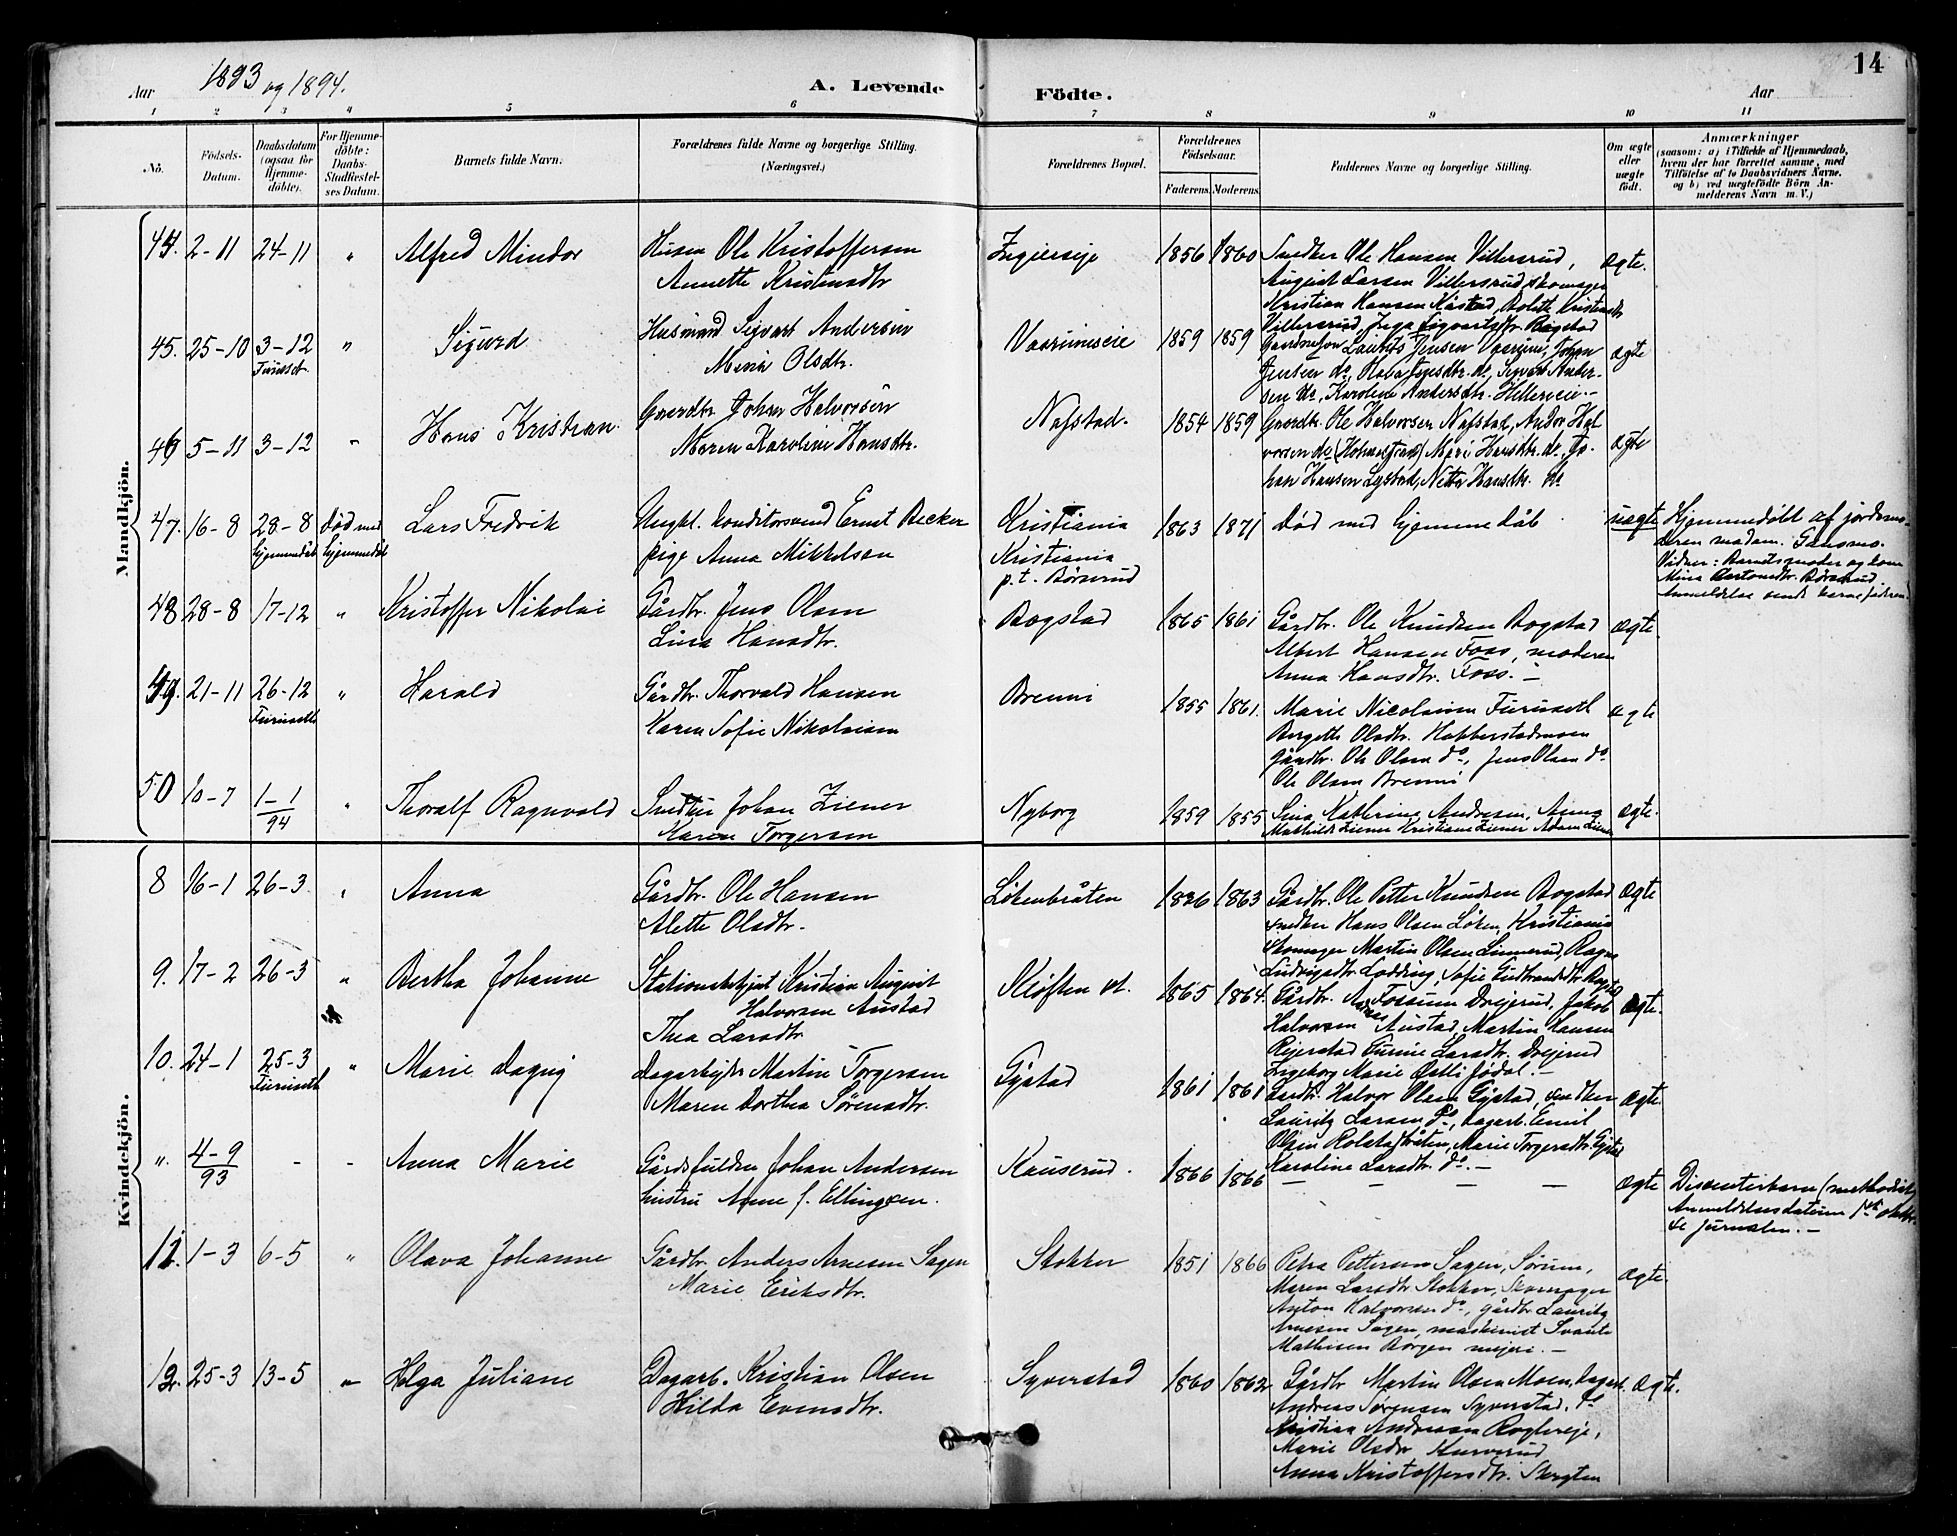 14
Aar 1893 og 1894.
A. Levende Födte.
Aar
1 2 3 4 5 6 7 8 9 10 11
No.
Födsels-Datum.
Daabsdatum (ogsaa for Hjemme-döbte).
For Hjemme-döbte: Daabs-Stadfæstel-ses Datum.
Barnets fulde Navn.
Forældrenes fulde Navne og borgerlige Stilling. (Næringsvei.)
Forældrenes Bopæl.
Forældrenes Födselsaar.
Faderens. Moderens.
Faddernes Navne og borgerlige Stilling.
Om ægte eller uægte födt.
Anmærkninger
(saasom: a) i Tilfælde af Hjemmedaab, hvem der har forrettet samme, med Tilföielse af to Daabsvidners Navne, og b) ved uægtefödte Börn An-melderens Navn m. V.)
Mandkjön.
44. 2-11 24-11 " Alfred Mindor
Husm Ole Kristoffersen
Annette Kristensdtr
1856 1860
Snedker Ole Hansen Villersrud,
August Larsen Villersrud, Skomager
Kristian Hansen
ægte.
45. 25-10 3-12 " Sigurd
Husmand Sigvart Andersen
Olsdtr.
1859 1859
ægte
46 5-11 3-12 " Hans Kristian
Gaardbr. Johan Halvorsen
Maren Karoline Hansdtr.
Nafstad.
1854 1859
Gaardbr. Ole Halvorsen Nafstad, Andor Hal
vorsen do
han Hansen
ægte
47. 16-8 28-8 Død med Hjemmedåb
Lars Fredrik
Ungkl. Ernst Becker
pige Anna Mikkelsen
Kristiania
Kristiania
p.t. Børsrud
1863 1871
død med hjemmedåb
uægte
Hjemmedøbt af jordemo-
deren madam.
Vidner: Barnets moder og
48 28-8 17-12 " Kristoffer Nikolai
Gårdbr. Jens Olsen
Lina Hansdtr.
Bogstad
1865 1861
Gårdbr. Ole Knudsen Bogstad
Albert Hansen Foss, moderen
Anna Hansdtr. Foss. –
ægte
49. 21-11 26-12 Furuseth " Harald
Gårdbr. Thorvald Hansen
Karen Sofie Nikolaisen
Brenni
1855 1861.
Marie Nicolaisen Furuseth
Olsdtr.
Gårdbr. Ole Olsen do, Jens Olsen do
Ole Olsen Brenni
ægte
50 10-7 1-1 94 " Thoralf Ragnvald
Snedker Johan Ziener
Maren Torgersen
Nyborg
1859 1855
Lina Kathrine Andersen, Anna
Mathilde Ziener Kristiane Ziener Adam Ziener
ægte.
Kvindekjön.
8 16-1 26-3 " Anna
Gårdbr. Ole Hansen
Alette Olsdtr.
Løkenbråten
1826 1863
Gårdbr. Ole Petter Knudsen Bogstad
snedker Hans Olsen Løken, Kristiania
Skomager Martin Olsen Linnerud, Ragna
ægte
9. 17-2 26-3 " Bertha Johanne
Stationsbetjent Kristian August
Halvorsen Austad
Thea Larsdtr
Kløften st.
1865 1864.
Gårdbr. Fossum Drejerud, Jakob
Halvorsen Austad, Martin Larsen
Rejerstad Larsdtr. Drejerud
Ingeborg Marie
ægte.
10. 24-1 25-3 Furuseth " Marie Dagny
Dagarbejder Martin Torgersen
Maren Dorthea Sørensdtr.
Gystad
1861 1861
Gårdbr. Halvor Olsen Gystad, snedker
Lauritz Larsen do, dagarb. Emil
Olsen Rolstadbråten, Marie Torgersdtr. Gystad
Karoline Larsdtr. do. –
ægte.
" 4-9 93 - - Anna Marie
Johan Andersen
hustru Anne f. Ellingsen.
Kauserud.
1866 1866
— — — —
ægte
Dissenterbarn (methodist)
Anmeldelsesdatum
se jurnalen. –
11. 1-3 6-5 " Olava Johanne
Gårdbr Anders Arnesen Sagen
Marie Eriksdtr.
Stokker
1851 1866
Petra Pettersen Sagen, Sørum,
Maren Larsdtr Stokker, Skomager
Anton Halvorsen do, gårdbr Lauritz
Arnesen Sagen, maskinist Svante
Mathisen Borgen mejeri. –
ægte.
12. 25-3 13-5 " Helga Juliane
Dagarb. Kristian Olsen
Hilda Evensdtr.
Syverstad
1860 1862
Gårdbr Martin Olsen Moen, Dagarb.
Andreas Sørensen Syverstad, do
Kristian Andersen
Marie Olsdtr
Anna Kristoffersdtr.
ægte.